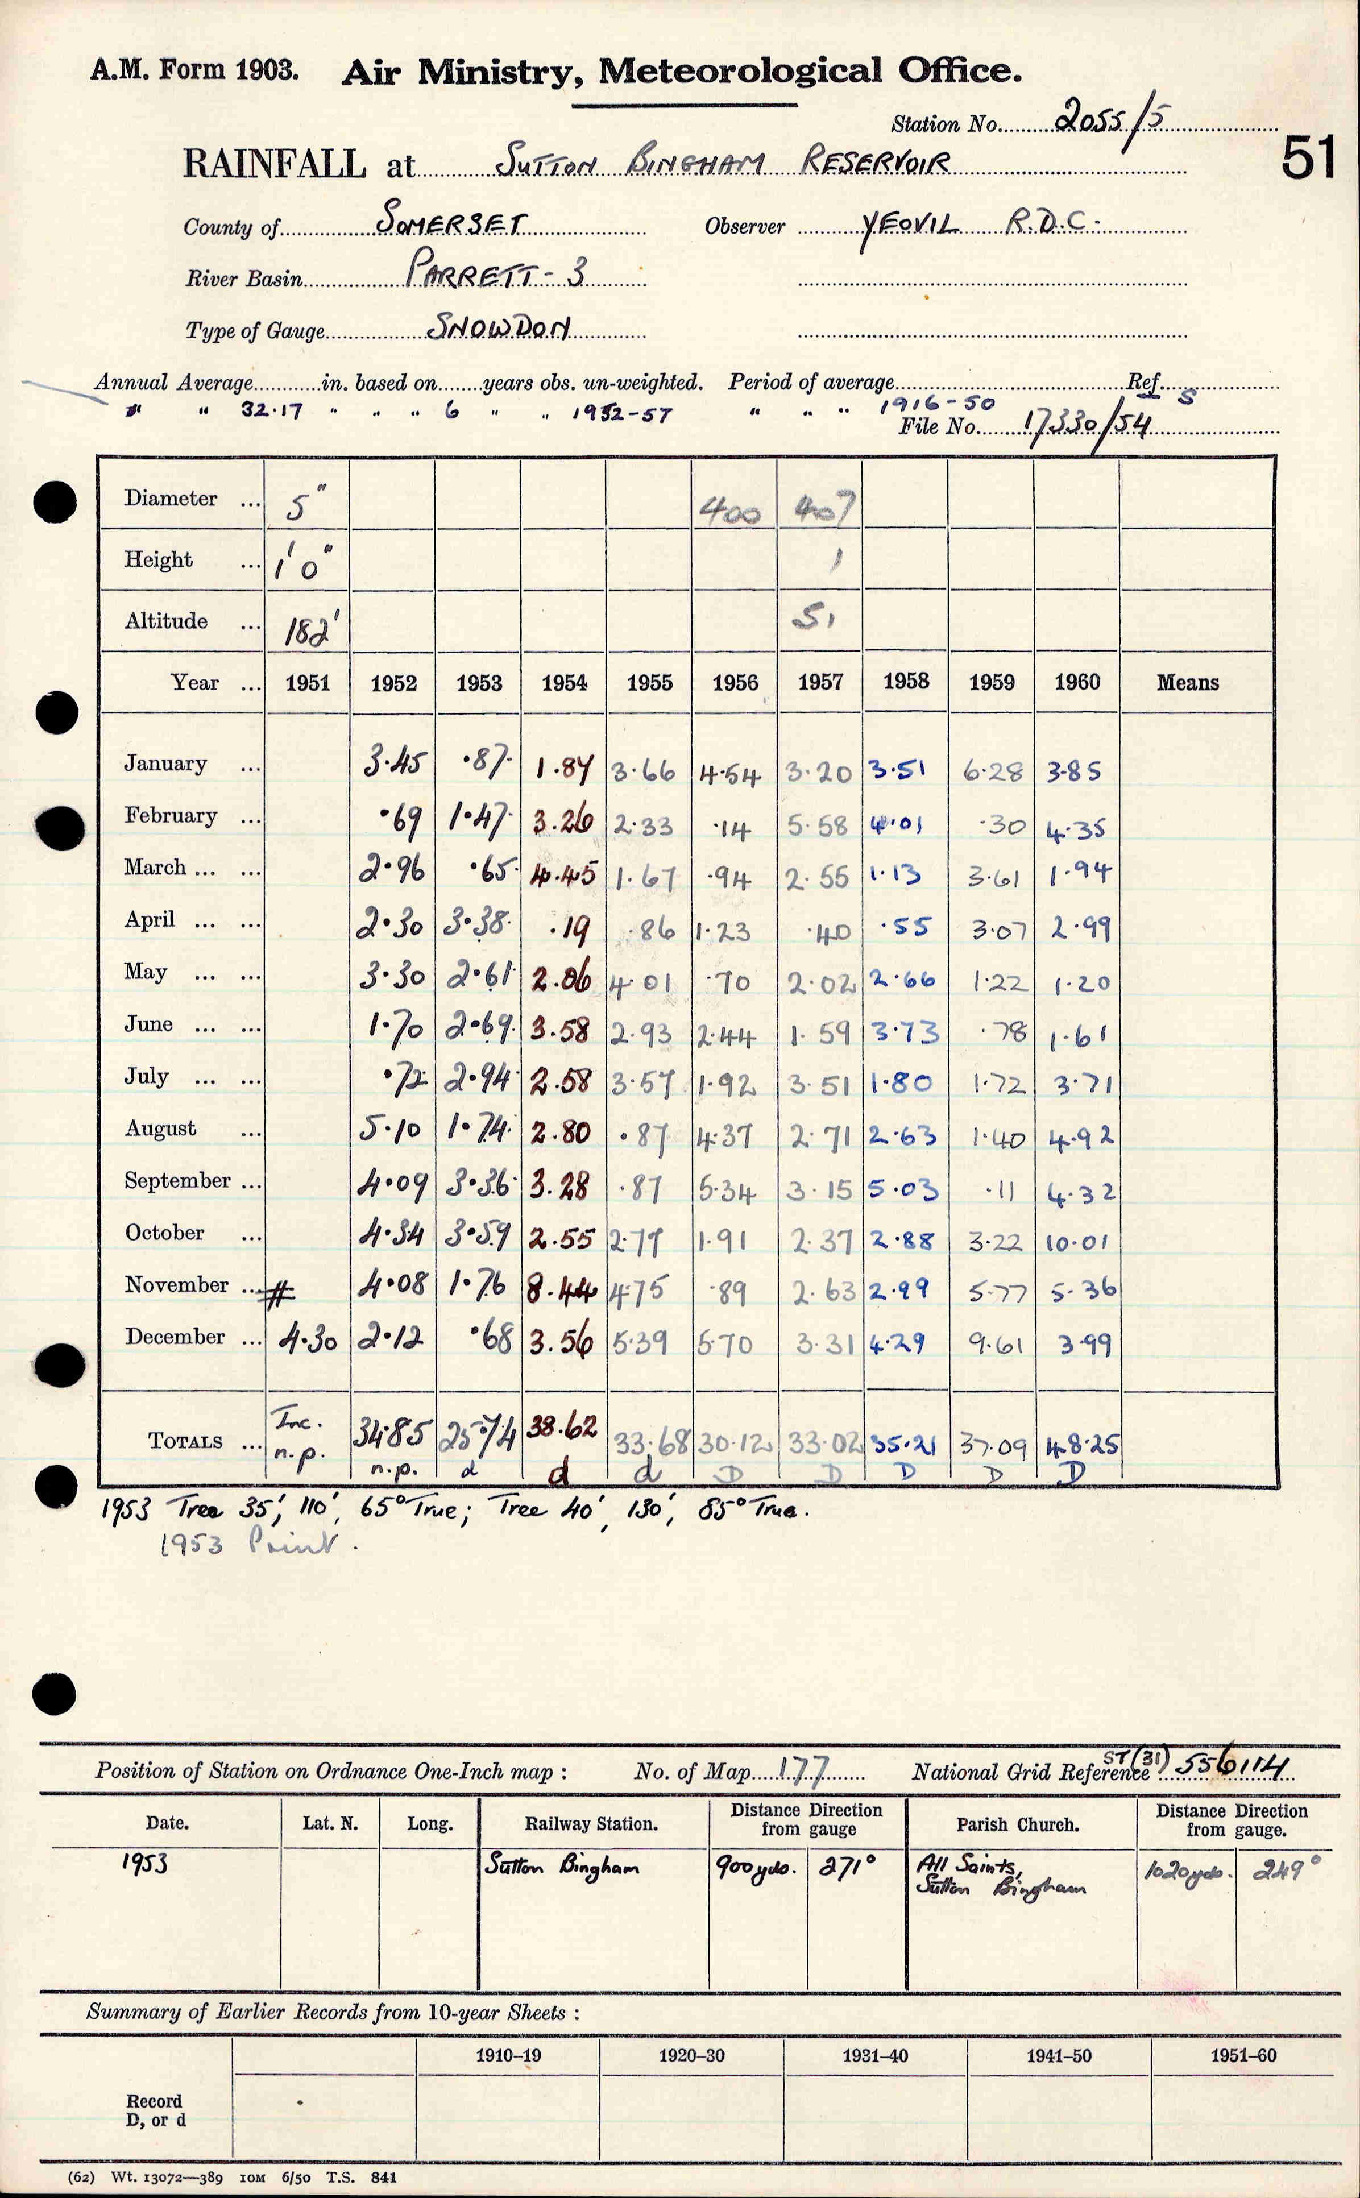 A.M. Form 1903. Air Ministry, Meteorological Office.
Station No. 2055/5
RAINFALL at SUTTON BINGHAM RESERVOIR 51
County of SOMERSET Observer YEOVIL R.D.C.
River Basin PARRETT - 3
Type of Gauge SNOWDON
Annual Average in. based on years obs. un-weighted. Period of average Ref. S
" " 32.17 " " " 6 " " 1952-57 " " " 1916-50
File No. 17330/54
Diameter ... 5" 400 407
Height ... 1' 0" 1
Altitude ... 182' 51
Year ... 1951 1952 1953 1954 1955 1956 1957 1958 1959 1960 Means
January ... 3.45 .87 1.87 3.66 4.54 3.20 3.51 6.28 3.85
February ... .69 1.47 3.26 2.33 .14 5.58 4.01 .30 4.35
March ... ... 2.96 .65 4.45 1.67 .94 2.55 1.13 3.61 1.94
April ... ... 2.30 3.38 .19 .86 1.23 .40 .55 3.07 2.99
May ... ... 3.30 2.61 2.06 4.01 .70 2.02 2.66 1.22 1.20
June ... ... 1.70 2.69 3.58 2.93 2.44 1.59 3.73 .78 1.61
July ... ... .72 2.94 2.58 3.57 1.92 3.51 1.80 1.72 3.71
August ... 5.10 1.74 2.80 .87 4.37 2.71 2.63 1.40 4.92
September ... 4.09 3.36 3.28 .87 5.34 3.15 5.03 .11 4.32
October ... 4.34 3.59 2.55 2.77 1.91 2.37 2.88 3.22 10.01
November ... # 4.08 1.76 8.44 4.75 .89 2.63 2.99 5.77 5.36
December ... 4.30 2.12 .68 3.56 5.39 5.70 3.31 4.29 9.61 3.99
TOTALS ... Inc. n.p. 34.85 25.74 38.62 33.68 30.12 33.02 35.21 37.09 48.25
n.p. d d d D D D D D
1953 Tree 35', 110', 65° True; Tree 40', 130', 85° True.
1953 Print.
Position of Station on Ordnance One-Inch map : No. of Map 177 National Grid Reference ST(31) 556114
Date. Lat. N. Long. Railway Station. Distance Direction from gauge Parish Church. Distance Direction from gauge.
1953 Sutton Bingham 900 yds. 271° All Saints, Sutton Bingham 1020 yds. 249°
Summary of Earlier Records from 10-year Sheets :
1910–19 1920–30 1931–40 1941–50 1951–60
Record
D, or d
(62) Wt. 13072—389 10M 6/50 T.S. 841